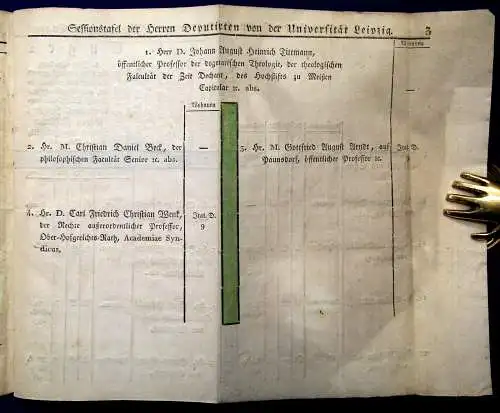 Sessionstafel der Herren Deputirten von der Universität Leipzig.
3
Wohnung
1. Herr D. Johann August Heinrich Tittmann,
öffentlicher Professor der dogmatischen Theologie, der theologischen
Facultät der Zeit Dechant, des Hochstifts zu Meißen
Capitular ꝛc. abs.
—
Wohnung
2. Hr. M. Christian Daniel Beck, der
philosophischen Facultät Senior ꝛc. abs.
—
3. Hr. M. Gottfried August Arndt, auf
Paunsdorf, öffentlicher Professor ꝛc.
4. Hr. D. Carl Friedrich Christian Wenk,
der Rechte außerordentlicher Professor,
Ober-Hofgerichts-Rath, Academiae Syn-
dicus.
9